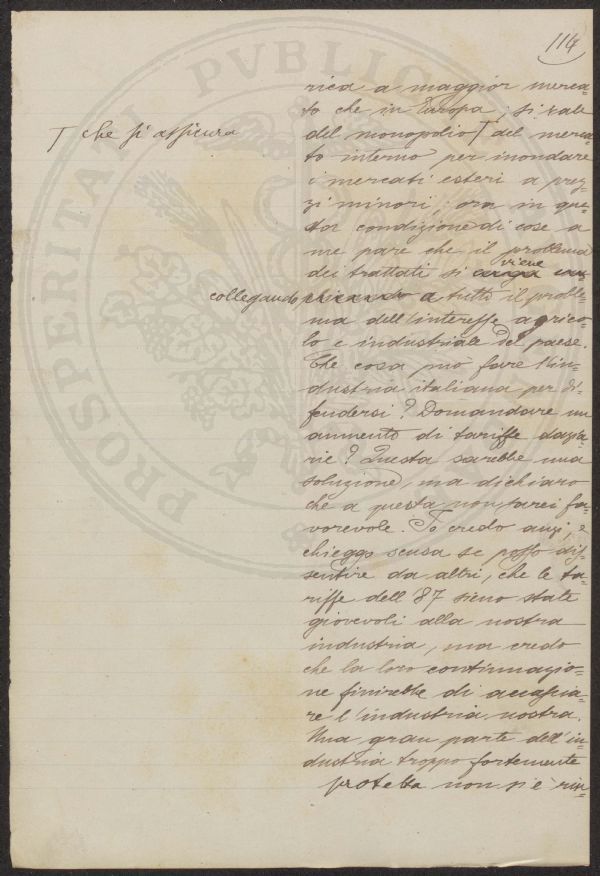 114
rica a maggior merca-
to che in Europa, si vale
T che si assicura
del monopolio T del merca-
to interno per inondare
i mercati esteri a prez-
zi minori; ora in que-
sta condizione di cose a
me pare che il problema
viene
dei trattati si
collegando a tutto il proble-
ma dell'interesse agrico-
lo e industriale del paese.
Che cosa può fare l'in-
dustria italiana per di-
fendersi? Domandare un
aumento di tariffe dazia-
rie? Questa sarebbe una
soluzione, ma dichiaro
che a questa non sarei fa-
vorevole. Io credo anzi, e
chieggo scusa se posso dis-
sentire da altri, che le ta-
riffe dell'87 sieno state
giovevoli alla nostra
industria, ma credo
che la loro continuazio-
ne finirebbe di accascia-
re l'industria nostra.
Una gran parte dell'in-
dustria troppo fortemente
protetta non si è rin-
PROSPERITATI PVBLICAE